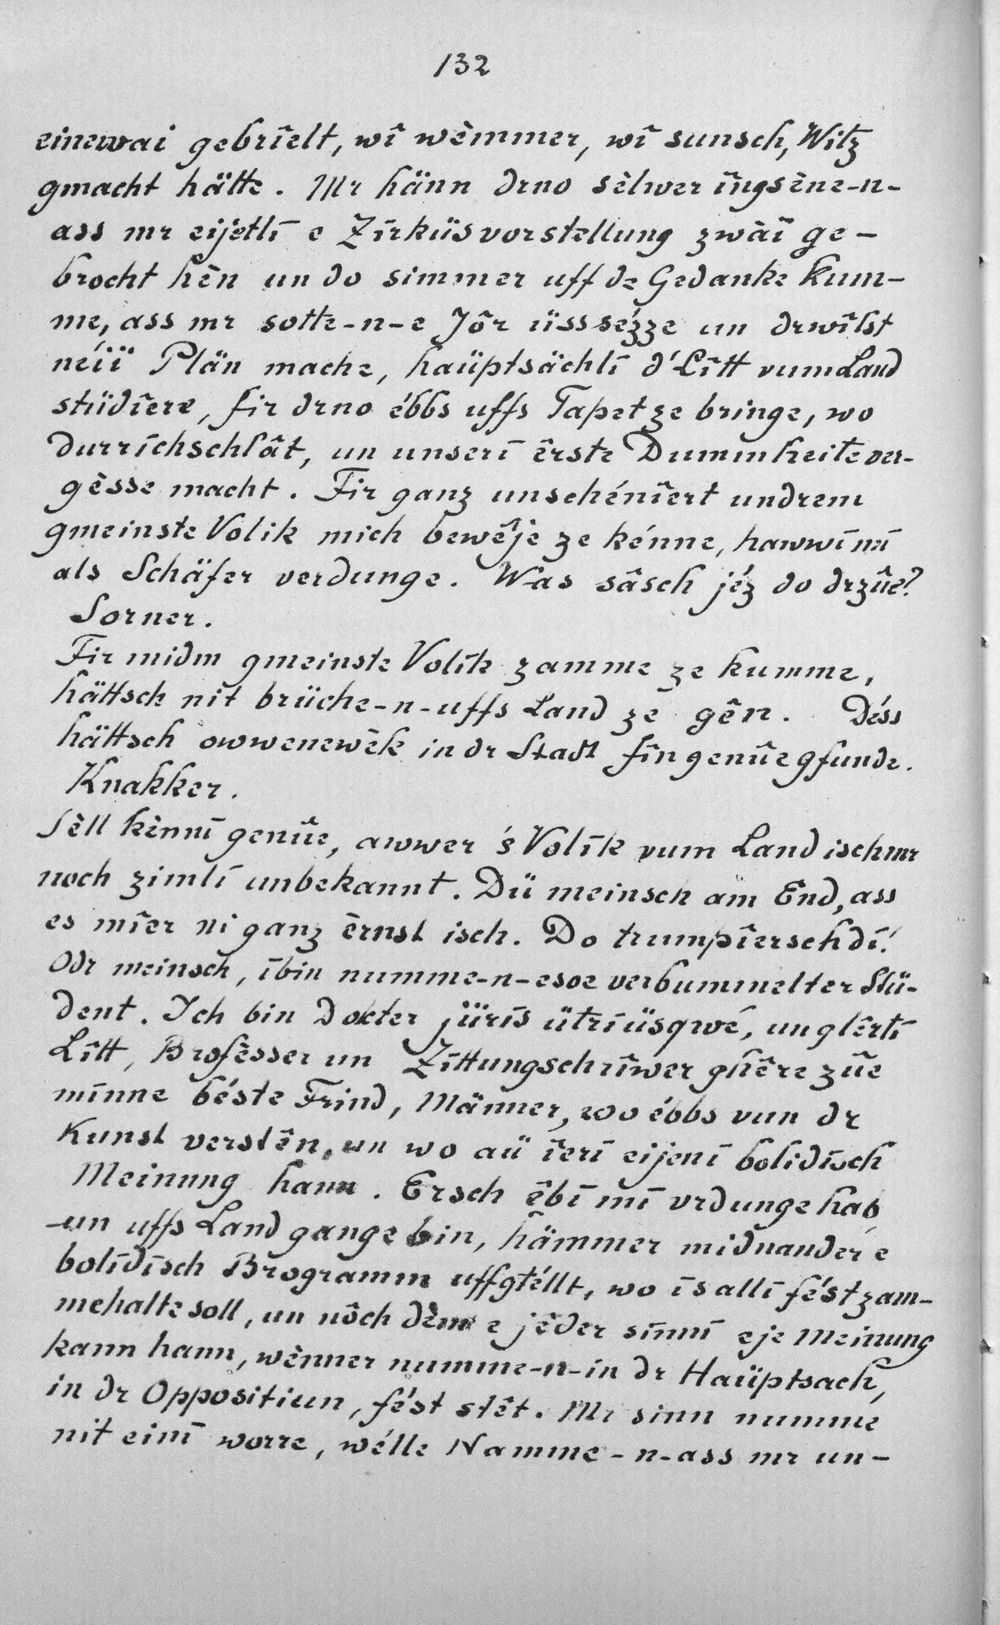 132
einewai gebrîelt, wî wèmmer, wî sunsch, Witz
gmacht hätte. Mr hänn drno sèlwer îngsène-n-
ass mr eijetlî e Zîrküsvorstellung zwäi ge-
brocht hèn un do simmer uff de Gedanke kum-
me, ass mr sotte-n-e Jôr üss sézze un drwîlst
néiï Plän mache, haüptsächlî d'Lîtt vum Land
stüdîere, fir drno ébbs uffs Tapet ze bringe, wo
durrîchschlât, un unserî êrste Dummheite ver-
gèsse macht. Fir ganz unschénîert undrem
gmeinste Volik mich bewêje ze kénne, hawwî mî
als Schäfer verdunge. Was sâsch jéz do drzûe?
Sorner.
Fir midm gmeinste Volîk zamme ze kumme,
hättsch nit brüche-n-uffs Land ze gên. Déss
hättsch owwenewèk in dr Stadt fîn genûe gfunde.
Knakker.
Sèll kènnî genûe, awwer 's Volîk vum Land isch mr
noch zimlî unbekannt. Dü meinsch am End, ass
es mîer ni ganz èrnst isch. Do trumpîersch dî!
Odr meinsch, î bin numme-n-esoe verbummelter Stü-
dent. Ich bin Dokter jürîs ütrîüsqwé, un glêrtî
Lîtt, Brofèsser un Zîttungschrîwer ghêre zûe
mînne béste Frind, Männer, wo ébbs vun dr
Kunst verstên, un wo aü îerî eijenî bolidîsch
Meinung hann. Ersch êbî mî vrdunge hab
un uffs Land gange bin, hämmer midnander e
bolîdîsch Brogramm uffgstéllt, wo îs allî fést zam-
mehalte soll, un nôch dèm e jêder sinnî eje Meinung
kann hann, wènner numme-n-in dr Haüptsach,
in dr Oppositiun, fést stêt. Mr sinn numme
nit einî worre, wélle Namme-n-ass mr un-